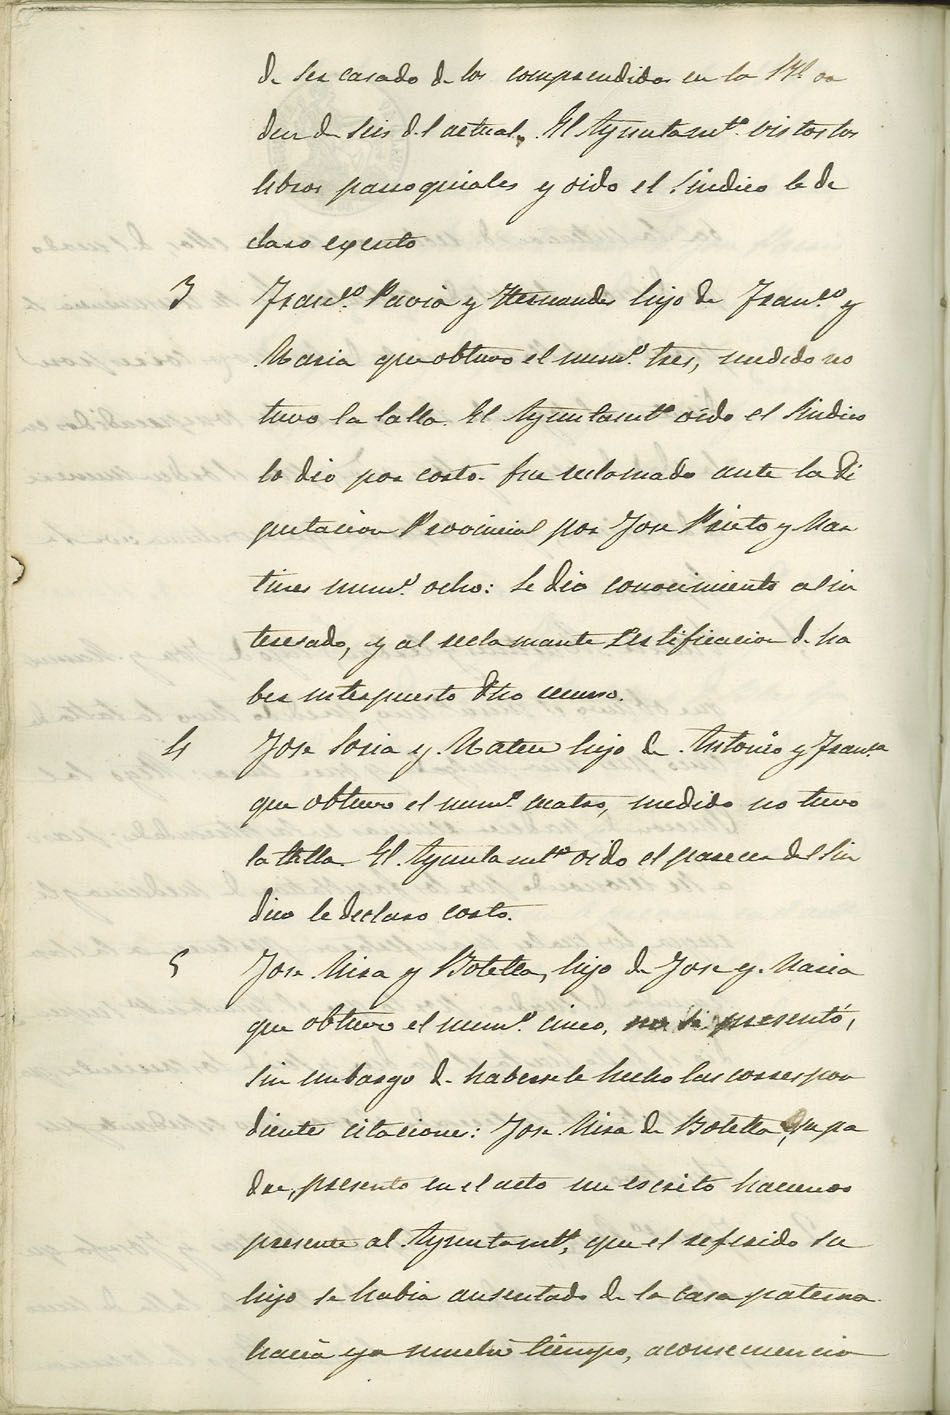 de ser casado de los comprendidos en la Rl. or
den de seis del actual. El Ayuntamto. vistos los
libros parroquiales y oido el Sindico le de
claro exento
3 Franco. Pavia y Hernandes hijo de Franco. y
Maria que obtuvo el numo. tres, medido no
tuvo la talla. El Ayuntamto. oido el Sindico
lo dio por corto. fue reclamado ante la Di
putacion Provincial por Jose Prieto y Mar
tines numo. ocho: se dio conocimiento al in
teresado, y al reclamante certificacion de ha
ber interpuesto dho recurso.
4 Jose Soria y Mateu hijo de Antonio y Franca
que obtuvo el numo. cuatro, medido no tuvo
la talla. El Ayuntamto. oido el parecer del Sin
dico le declaro corto.
5 Jose Mira y Botella, hijo de Jose y Maria
que obtuvo el numo. cinco, no se presentó,
sin embargo de habersele hecho las correspon
dientes citaciones: Jose Mira de Botella, su pa
dre, presento en el acto un escrito haciendo
presente al Ayuntamto, que el referido su
hijo se habia ausentado de la casa paterna
hacia ya mucho tiempo, a consecuencia